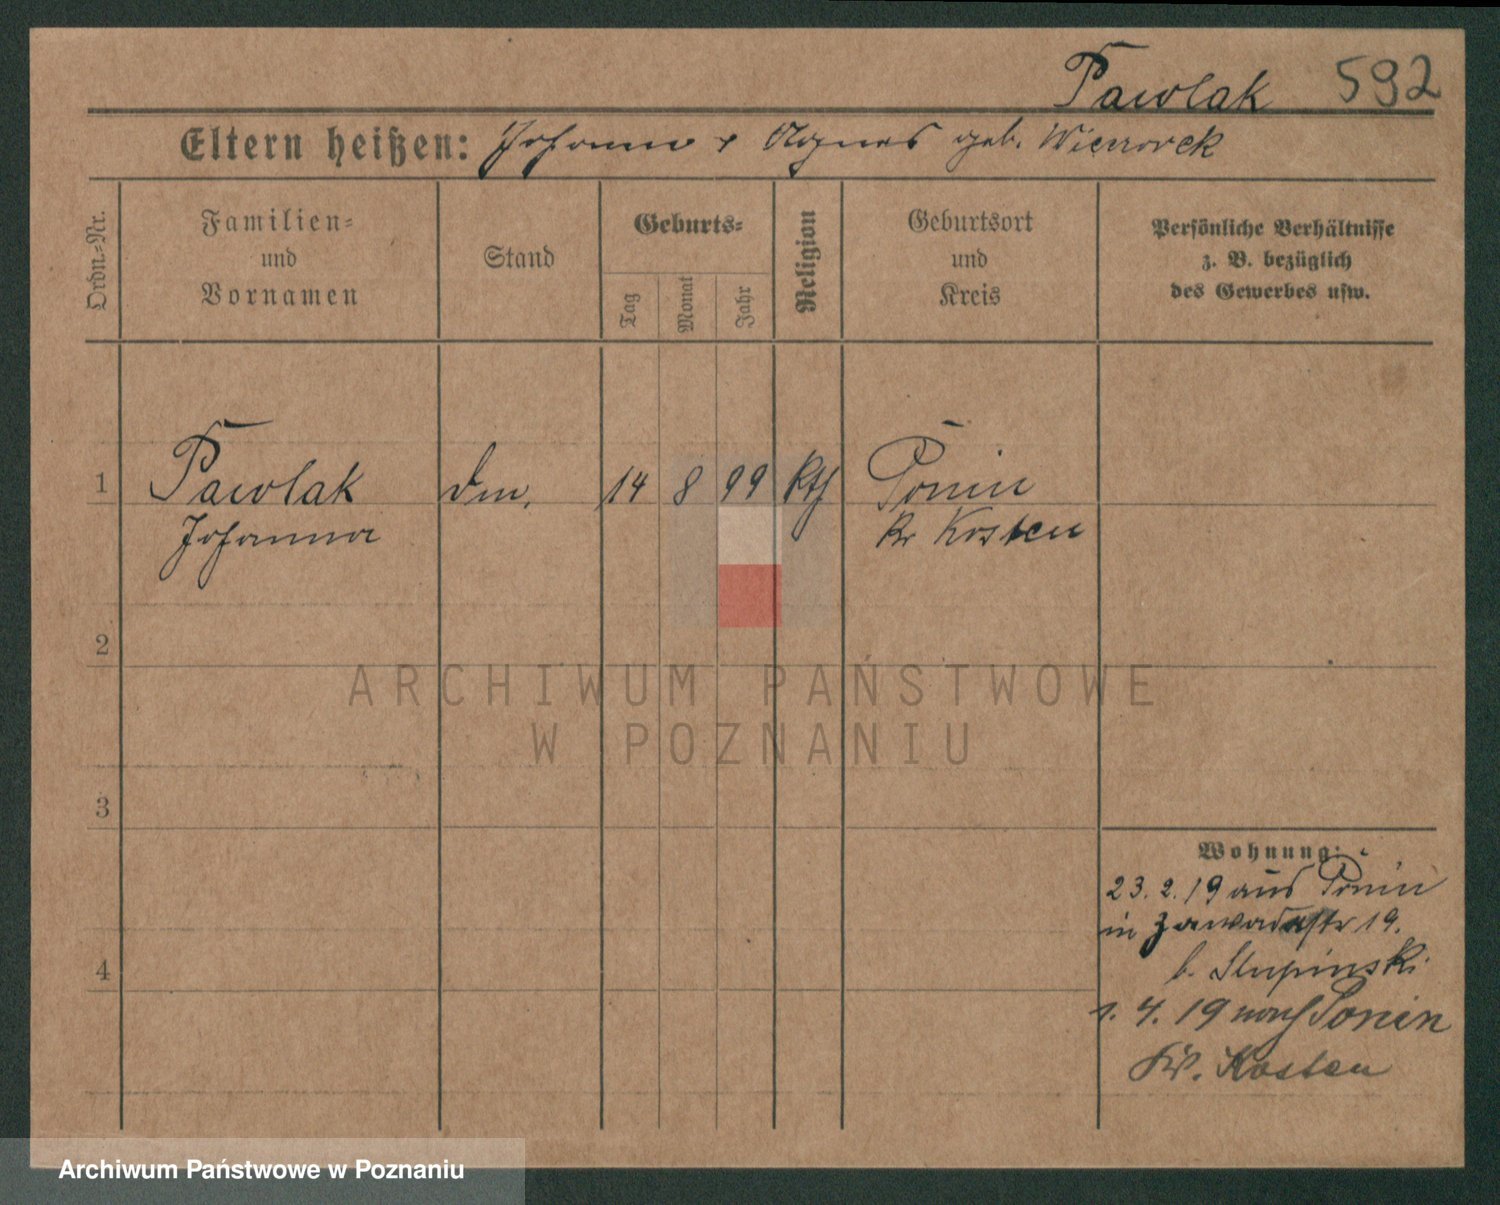 Pawlak 592
Eltern heißen: Johann + Agnes geb. Wieczorek
Ordn.-Nr.
Familien-
und
Vornamen
Stand
Geburts-
Tag
Monat
Jahr
Religion
Geburtsort
und
Kreis
Persönliche Verhältnisse
z. B. bezüglich
des Gewerbes usw.
1 Pawlak 14 8 99 kth Ponin
Johanna Kr Kosten
2
ARCHIWUM PAŃSTWOWE
W POZNANIU
3
Wohnung:
23.2.19 aus Ponin
in 19.
b. Slupinski
1.4.19 nach Ponin
Kr. Kosten
4
Archiwum Państwowe w Poznaniu